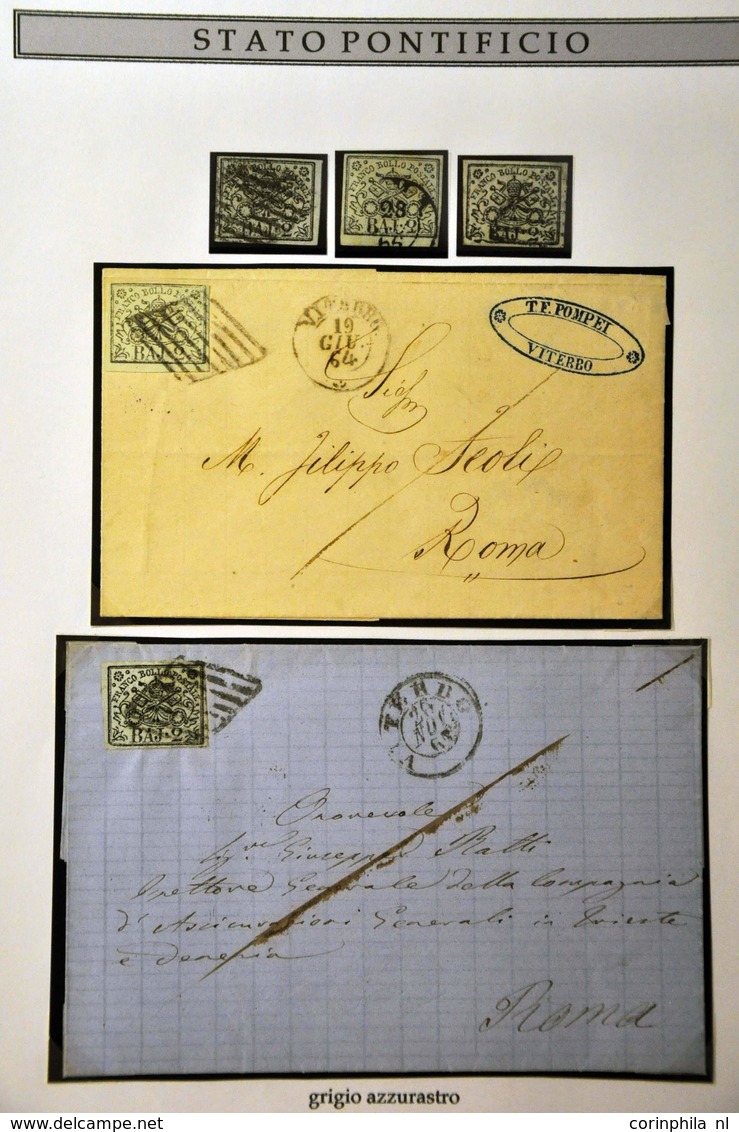 STATO PONTIFICIO
FRANCO BOLLO POSTALE
BAJ. 2
FRANCO BOLLO POSTALE
28
BAJ. 2
FRANCO BOLLO POSTALE
BAJ. 2
FRANCO BOLLO POSTALE
BAJ. 2
VITERBO
19
GIU.
64
T.F. POMPEI
VITERBO
Sigr
M. Filippo Feoli
Roma
FRANCO BOLLO POSTALE
BAJ. 2
VITERBO
NOV
Onorevole
Giuseppe Ratti
Generale della Compagnia
d'Assicurazioni Generali in Trieste
e Venezia
Roma
grigio azzurastro
corinphila nl